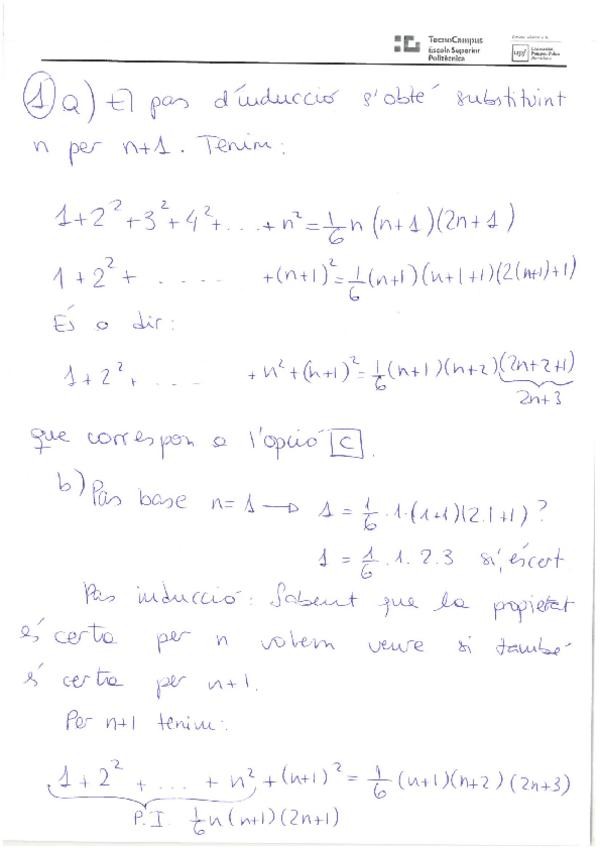 TecnoCampus
Escola Superior
Politècnica
upf
1 a) El pas d'inducció s'obté substituint
n per n+1. Tenim:
1+2²+3²+4²+...+n²=1/6 n(n+1)(2n+1)
1+2²+ . . . . . +(n+1)²=1/6(n+1)(n+1+1)(2(n+1)+1)
És a dir:
1+2²+ . . . . +n²+(n+1)²=1/6(n+1)(n+2)(2n+2+1)
2n+3
que correspon a l'opció C.
b) Pas base n=1 → 1=1/6·1·(1+1)(2·1+1)?
1=1/6·1·2·3 sí, és cert
Pas inducció: Sabent que la propietat
és certa per n volem veure si també
és certa per n+1.
Per n+1 tenim:
1+2²+...+n²+(n+1)²=1/6(n+1)(n+2)(2n+3)
P.I. 1/6 n(n+1)(2n+1)